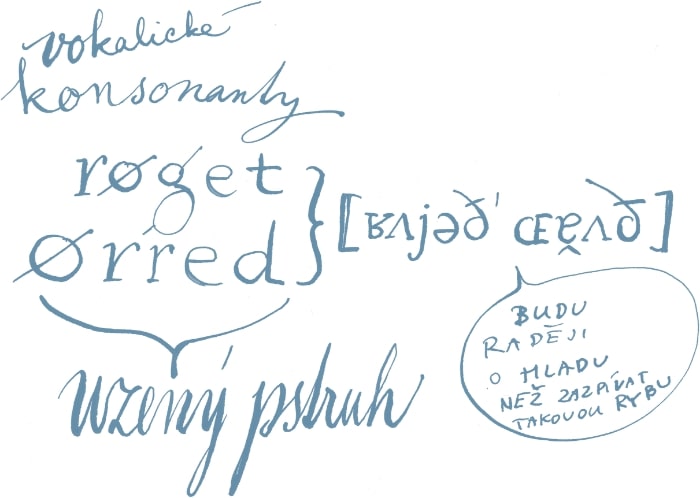 vokalické
konsonanty
røget
ørred
[ʁʌjəð' ɶɐ̯ʌð]
uzený pstruh
BUDU
RADĚJI
O HLADU
NEŽ ZAZPÍVAT
TAKOVOU RYBU